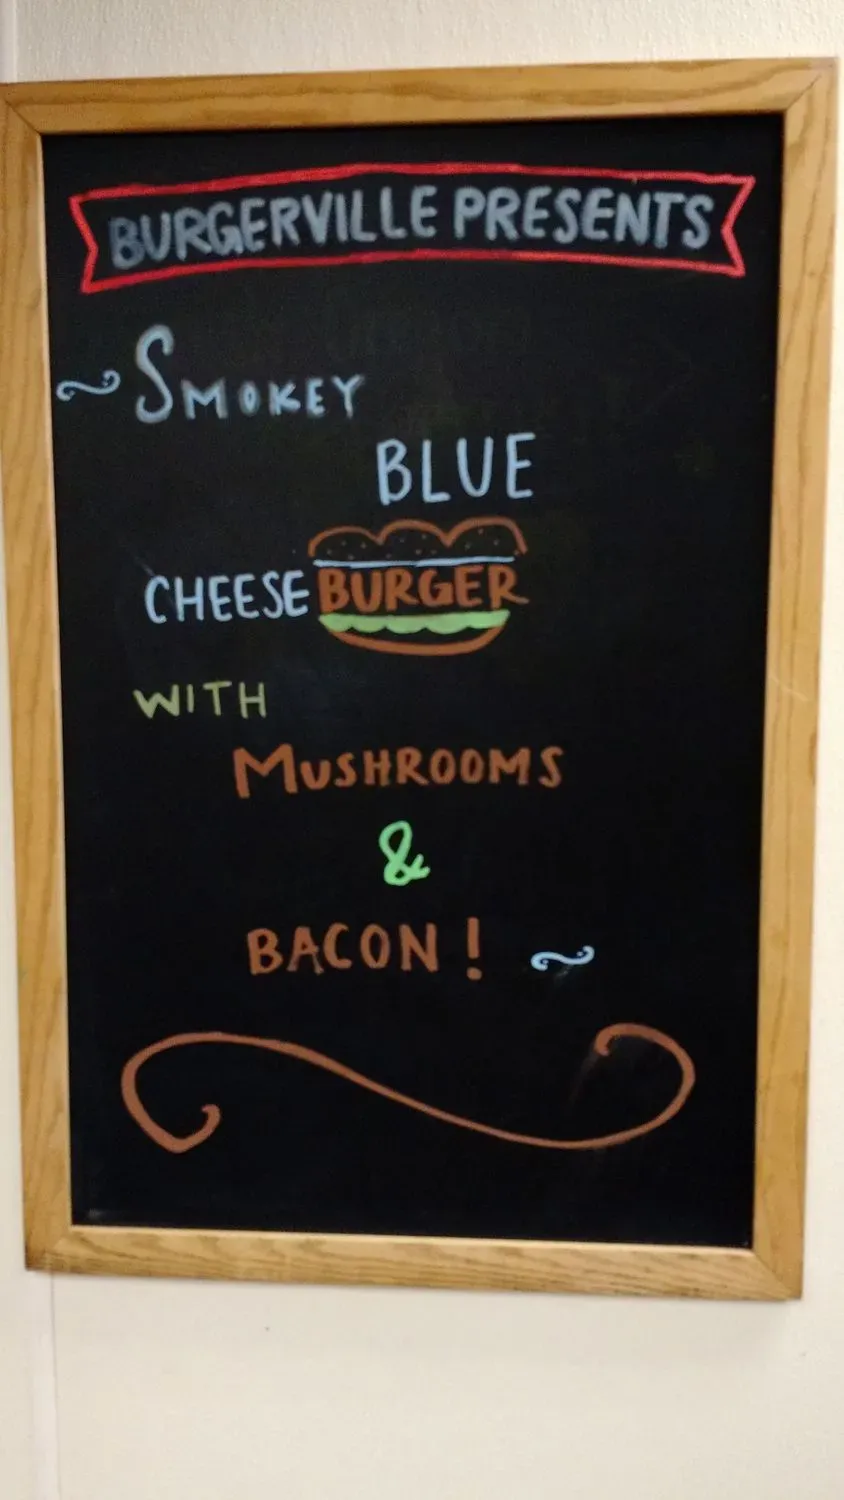 BURGERVILLE PRESENTS
~ SMOKEY
BLUE
CHEESE BURGER
WITH
MUSHROOMS
&
BACON! ~